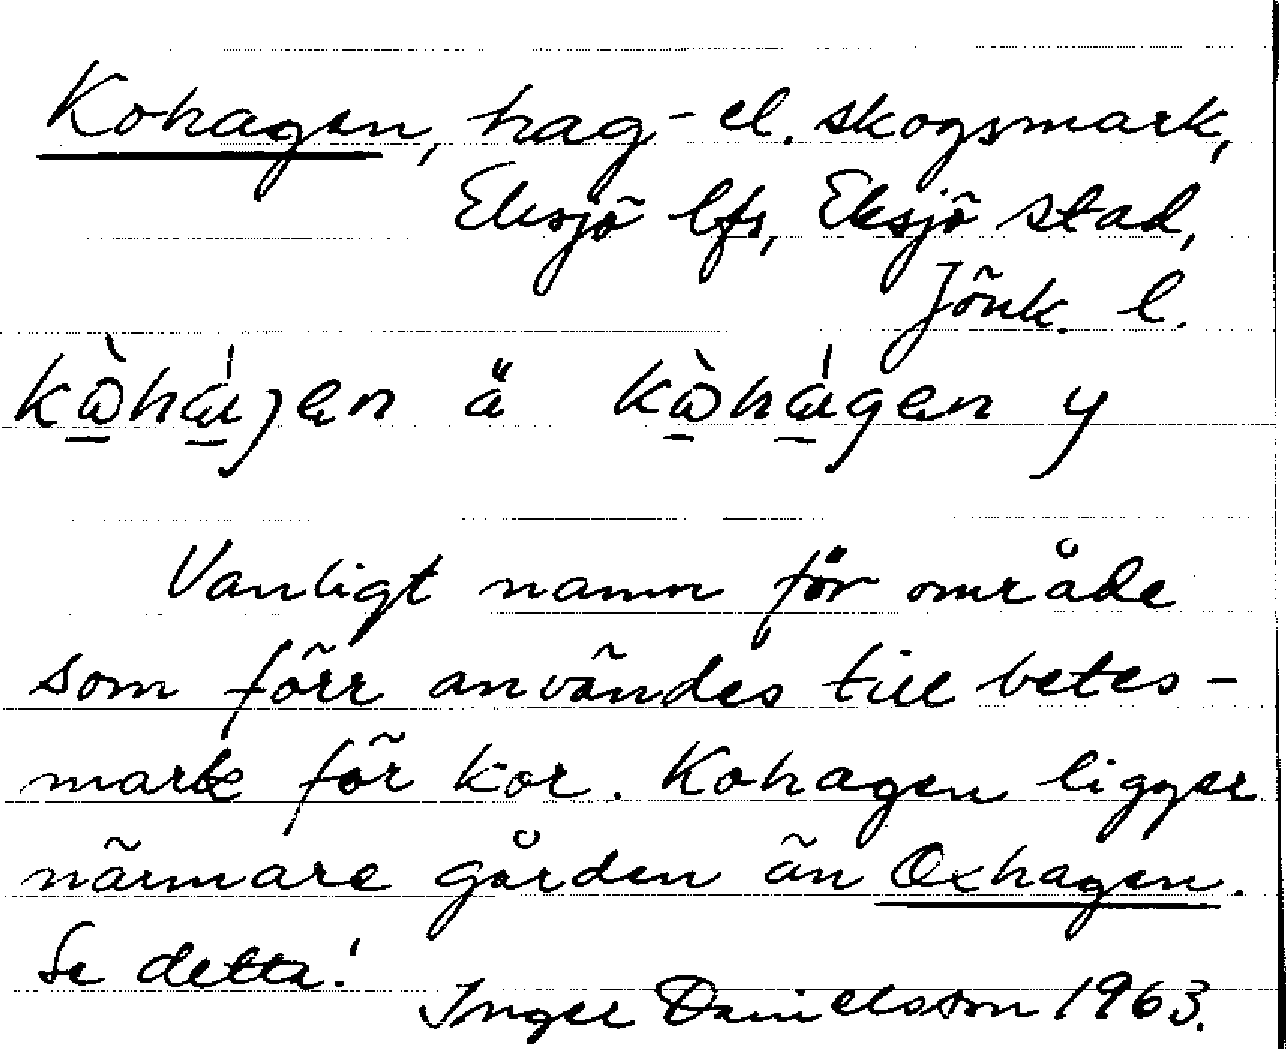 Kohagen, hag- el. skogsmark,
Eksjö lfs, Eksjö stad,
Jönk. l.
ä y
Vanligt namn för område
som förr användes till betes-
mark för kor. Kohagen ligger
närmare gården än Oxhagen.
Se detta!
Inger Danielsson 1963.